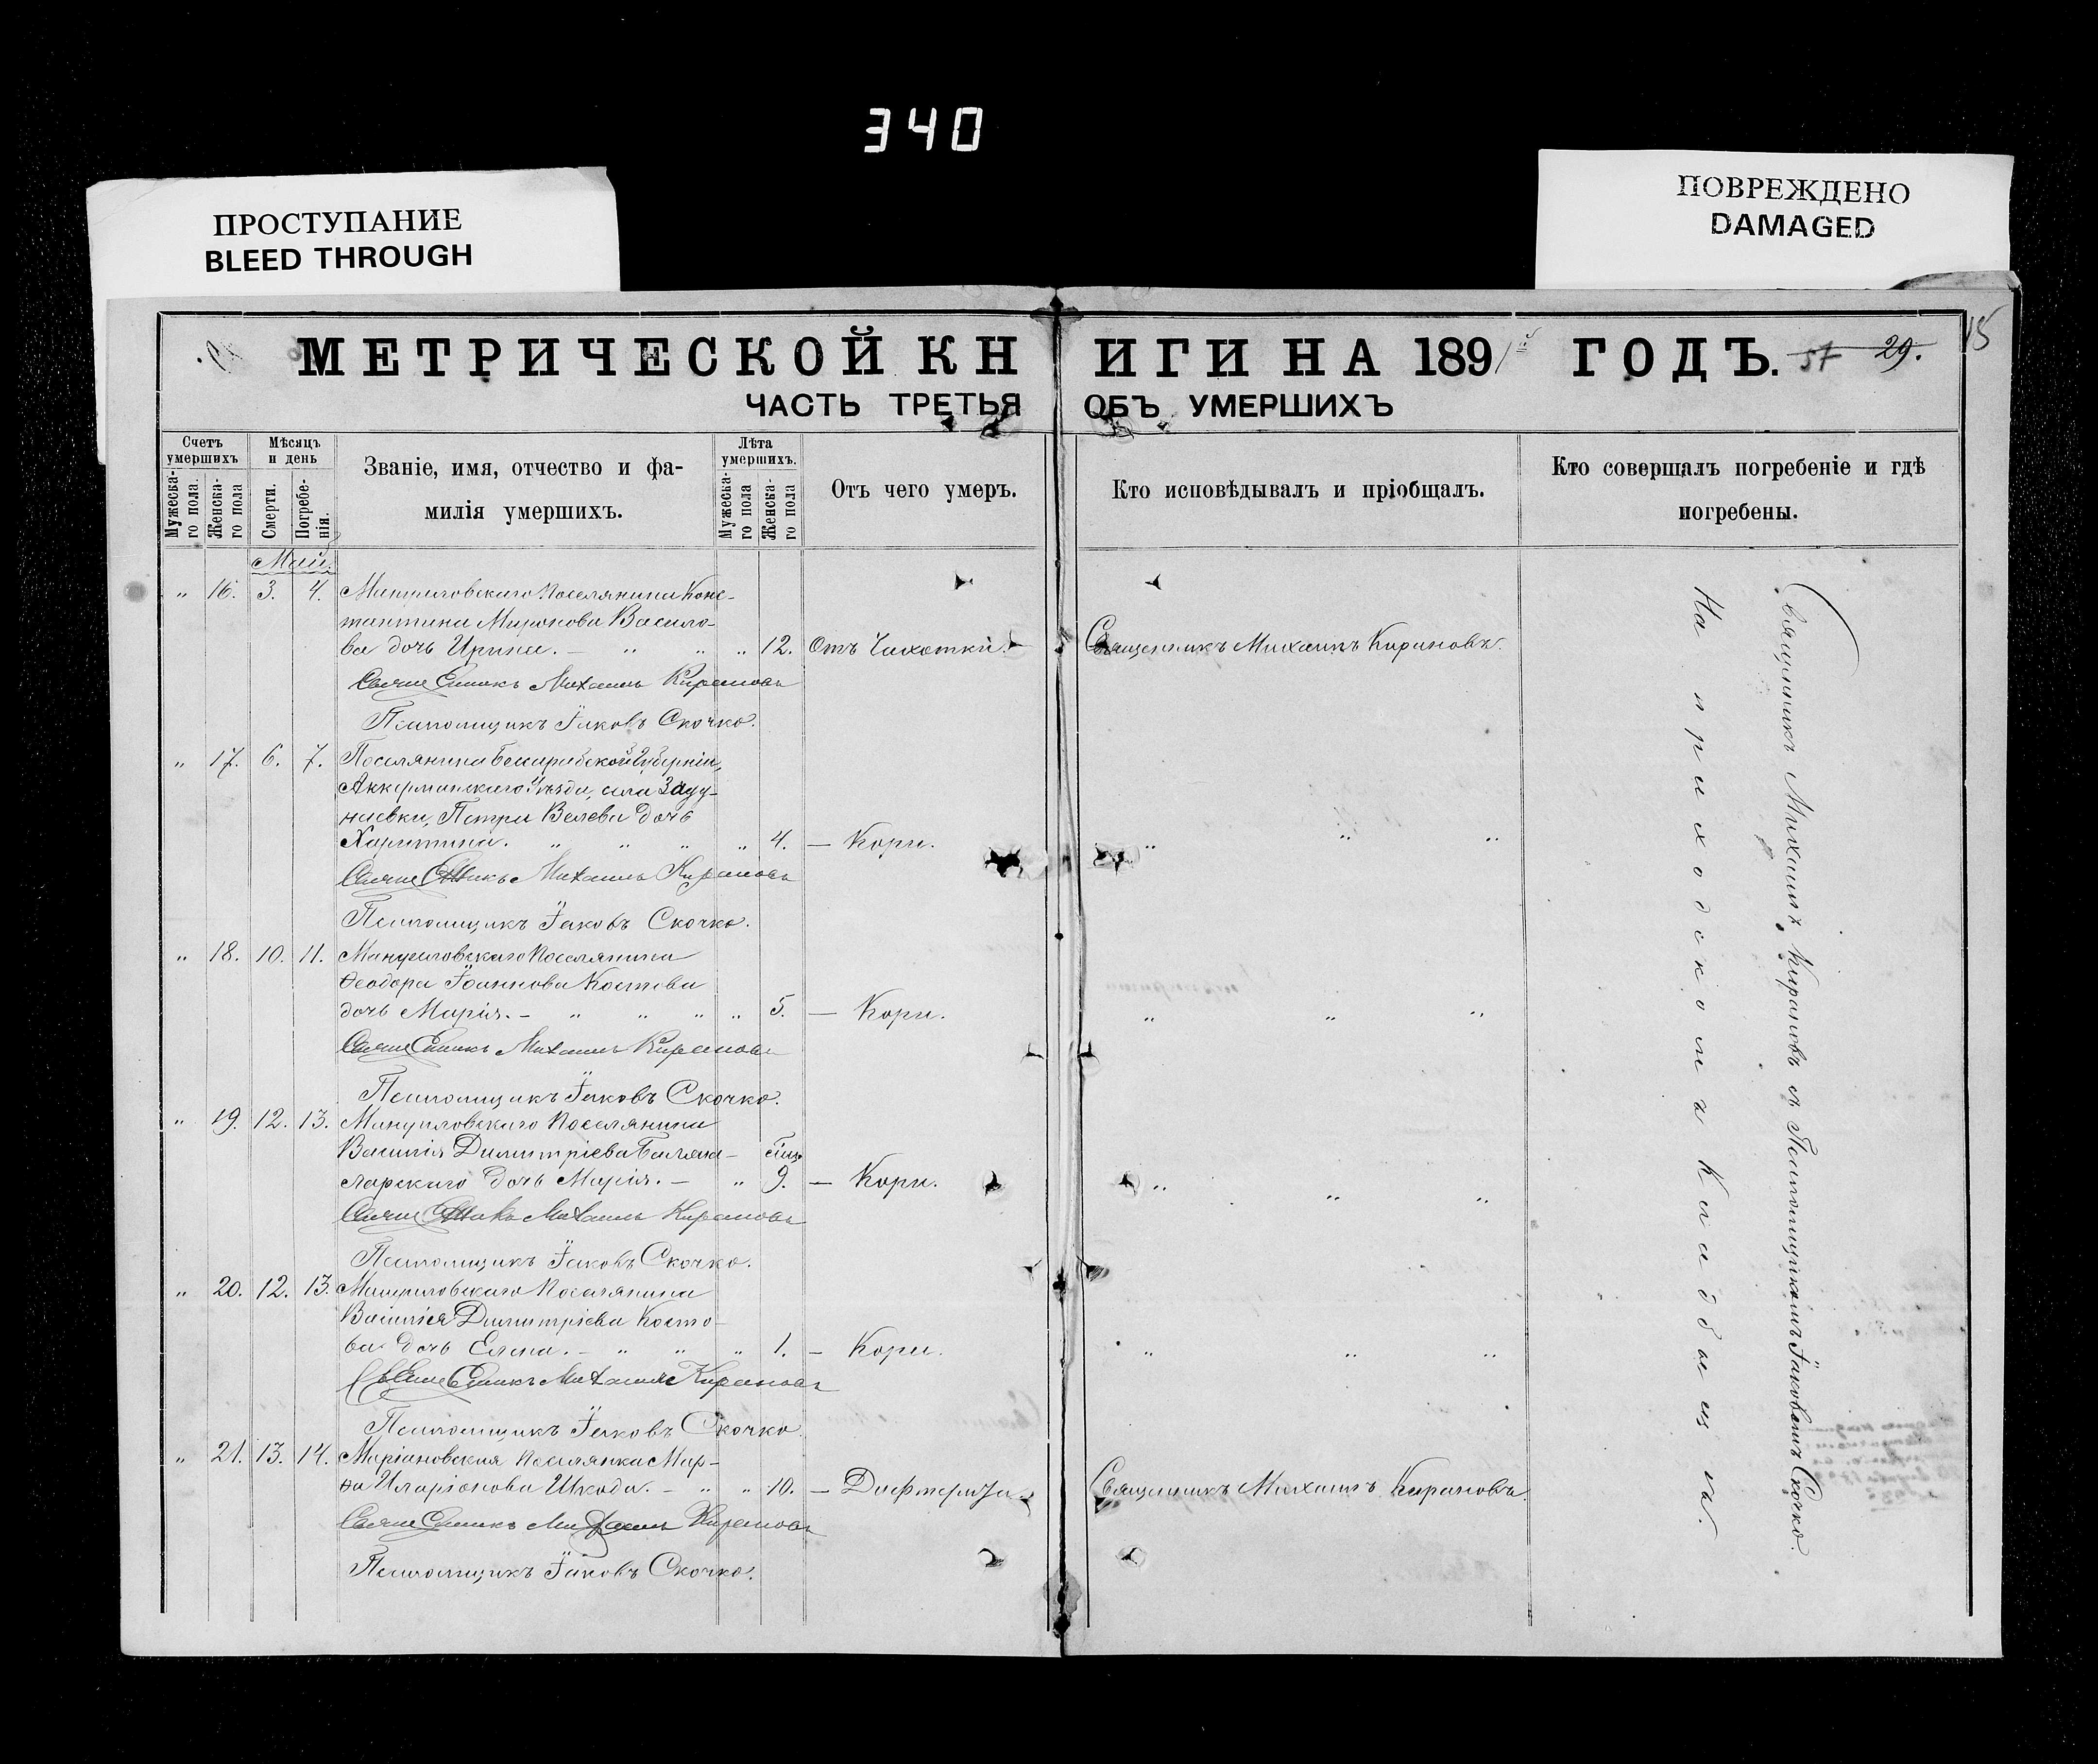 340
ПРОСТУПАНИЕ
BLEED THROUGH
ПОВРЕЖДЕНО
DAMAGED
МЕТРИЧЕСКОЙ КНИГИ НА 1891 ГОДЪ. 57 29. 15
ЧАСТЬ ТРЕТЬЯ ОБЪ УМЕРШИХЪ
Счетъ умершихъ
Мужеска-го пола.
Женска-го пола
Мѣсяцъ и день
Смерти.
Погребе-нія.
Званіе, имя, отчество и фа-
милія умершихъ.
Лѣта умершихъ.
Мужеска-го пола
Женска-го пола
Отъ чего умеръ.
Кто исповѣдывалъ и пріобщалъ.
Кто совершалъ погребеніе и гдѣ
погребены.
Май.
" 16. 3. 4. Мануиловскаго Поселянина Конс-
тантина Миронова Васило-
ва дочь Ирина. — " " " 12. Отъ Чахотки. Священникъ Михаилъ Кирановъ.
Священникъ Михаилъ Кирановъ
Псаломщикъ Іаковъ Скочко.
" 17. 6. 7. Поселянина Бессарабской Губерніи,
Аккерманскаго Уѣзда, села Заду-
наевки, Петра Велева дочь
Харитина. " " " " 4. — Кори. " " "
Священникъ Михаилъ Кирановъ
Псаломщикъ Іаковъ Скочко.
" 18. 10. 11. Мануиловскаго Поселянина
Ѳеодора Іоаннова Костова
дочь Марія. — " " " " 5. — Кори. " " "
Священникъ Михаилъ Кирановъ
Псаломщикъ Іаковъ Скочко.
" 19. 12. 13. Мануиловскаго Поселянина
Василія Димитріева
дочь Марія. — " 9. — Кори. " " "
Священникъ Михаилъ Кирановъ
Псаломщикъ Іаковъ Скочко.
" 20. 12. 13. Мануиловскаго Поселянина
Василія Димитріева Косто-
ва дочь Елена. — " " " 1. — Кори. " " "
Священникъ Михаилъ Кирановъ
Псаломщикъ Іаковъ Скочко.
" 21. 13. 14. Маріановская Поселянка Мар-
ѳа Иларіонова Шкода. — " " 10. — Дифтерита. Священникъ Михаилъ Кирановъ.
Священникъ Михаилъ Кирановъ
Псаломщикъ Іаковъ Скочко.
Священникъ Михаилъ Кирановъ съ Псаломщикомъ Іаковомъ Скочко.
На приходскомъ кладбищѣ.